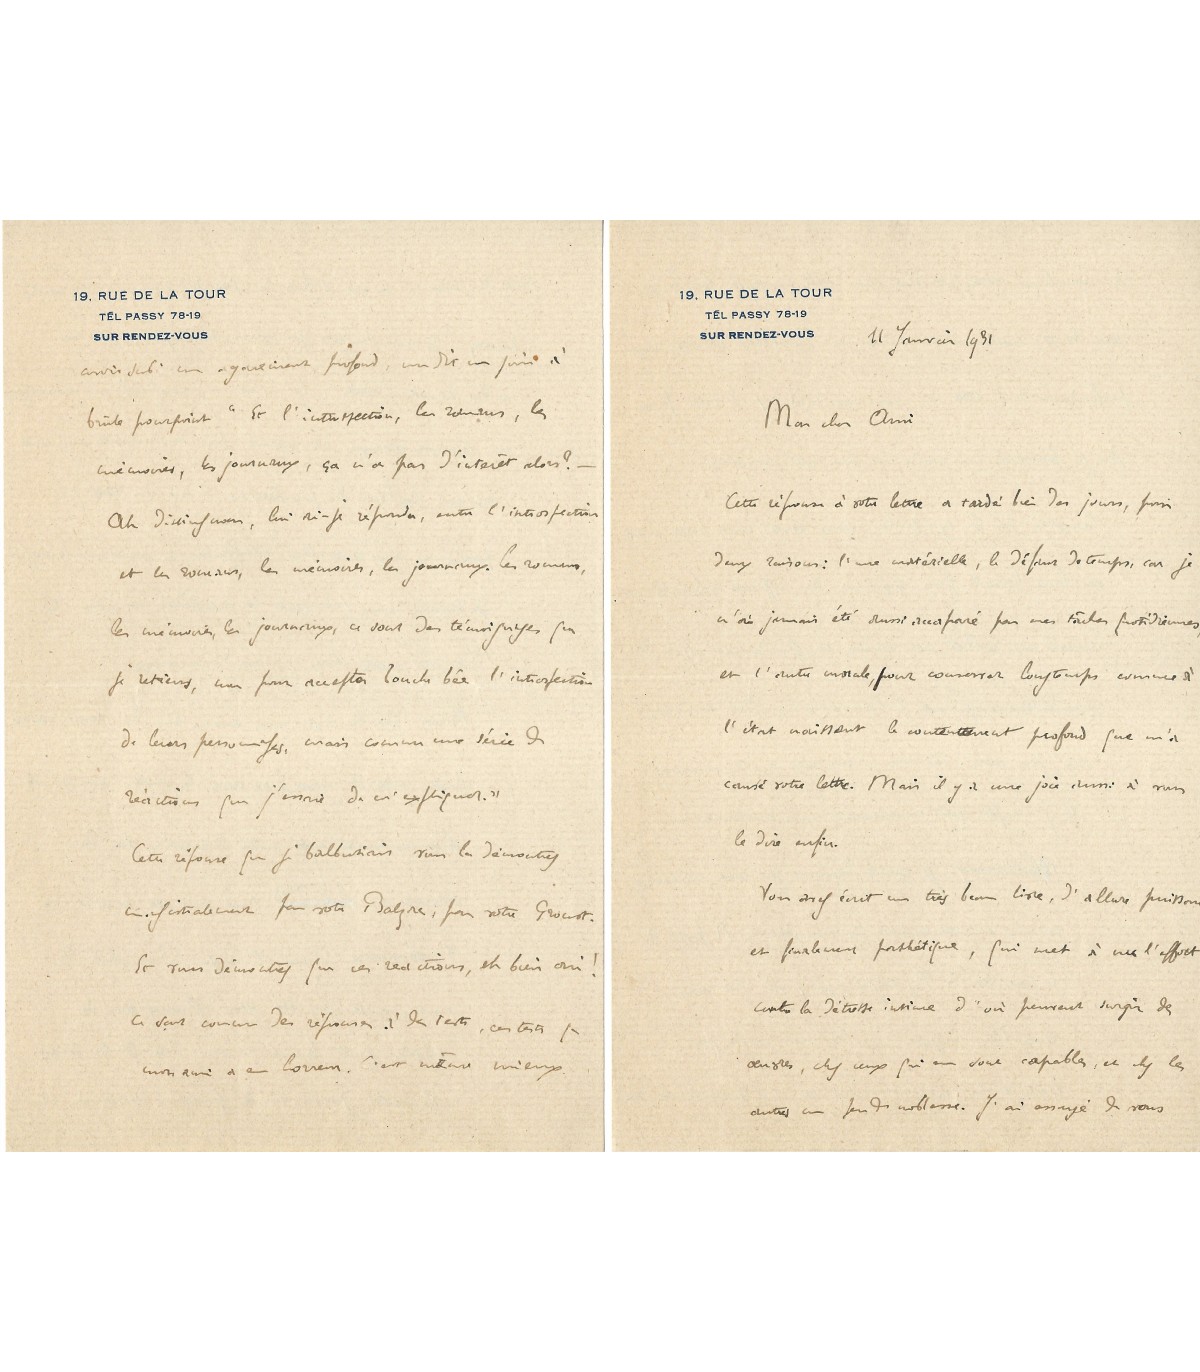 19, RUE DE LA TOUR
TÉL PASSY 78-19
SUR RENDEZ-VOUS
avoir subi un agacement profond, me dit un jour à
brûle pourpoint " Et l'introspection, les romans, les
mémoires, les journaux, ça n'a pas d'intérêt alors? —
Ah distinguons, lui ai-je répondu, entre l'introspection
et les romans, les mémoires, les journaux. Les romans,
les mémoires, les journaux, ce sont des témoignages que
je retiens, non pour accepter bouche bée l'introspection
de leurs personnages, mais comme une série de
réactions que j'essaie de m'expliquer."
Cette réponse que je balbutiais vous la démontrez
magistralement par votre Balzac, par votre Proust.
Et vous démontrez que ces réactions, eh bien oui!
ce sont comme des réponses à des tests, ces tests que
mon ami a en horreur. C'est même mieux
19, RUE DE LA TOUR
TÉL PASSY 78-19
SUR RENDEZ-VOUS
11 Janvier 1931
Mon cher Ami
Cette réponse à votre lettre a tardé bien des jours, pour
deux raisons: l'une matérielle, le défaut de temps, car je
n'ai jamais été aussi accaparé par mes tâches quotidiennes,
et l'autre morale, pour conserver longtemps comme à
l'état naissant le contentement profond que m'a
causé votre lettre. Mais il y a une joie aussi à vous
le dire enfin.
Vous avez écrit un très beau livre, d'allure puissante
et finalement pathétique, qui met à nu l'effort
contre la détresse intime d'où peuvent surgir des
œuvres, chez ceux qui en sont capables, et chez les
autres un peu de noblesse. J'ai essayé de vous